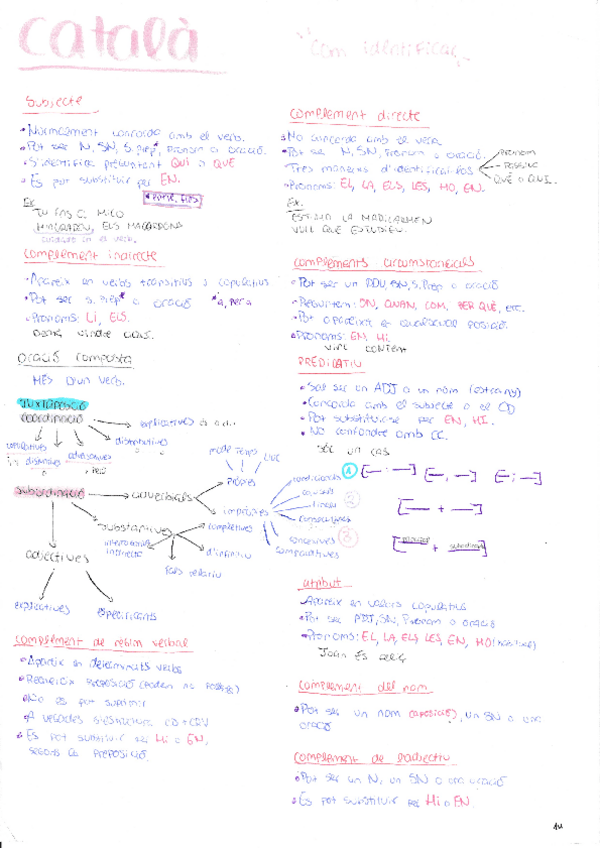 Català
Com identificar
Subjecte
• Normalment concorda amb el verb.
• Pot ser N, SN, S.prep*, Pronom o oració.
• S'identifica preguntant QUI o QUÈ
• Es pot substituir per EN.
Ex
TU FAS
M'AGRADEU, ELS MACARRONS
Complement indirecte
• Apareix en verbs transitius o copulatius
• Pot ser S.Prep* o oració *a, per a
• Pronoms: Li, ELS.
Oració composta
MÉS D'un verb.
Juxtaposició
Coordinació
explicatives
copulatives
distributives
adversatives
Subordinació
adverbials
pròpies
mode Temps Lloc
impròpies
condicionals
causals
finals
consecutives
concessives
comparatives
substantives
completives
interrogatives
indirectes
d'infinitiu
fals relatiu
adjectives
explicatives
especificants
Complement de règim verbal
• Apareix en determinats verbs
• Requereix preposició
• No es pot suprimir
• A vegades s'estructura CD + CRV
• Es pot substituir per Hi o EN,
segons la preposició.
Complement directe
• No concorda amb el verb
• Pot ser N, SN, Pronom o oració.
Tres maneres d'identificar-los
PRONOM
PASSIVA
QUÈ o QUI.
• Pronoms: EL, LA, ELS, LES, HO, EN.
Ex.
ESTIMO LA MARICARMEN
VULL QUE ESTUDIEU.
Complements circumstancials
• Pot ser un ADV, SN, S.Prep o oració
• Pregunten: ON, QUAN, COM, PER QUÈ, etc.
• Pot aparèixer en qualsevol posició.
• Pronoms: EN, Hi
VIVIA CONTENT
PREDICATIU
• Sol ser un ADJ o un nom (estrany)
• Concorda amb el subjecte o el CD
• Pot substituir-se per EN, HI.
• No confondre amb CC.
1
2
3
[— . —] [—, —] [— ; —]
[— + —]
[— + —]
Atribut
Apareix en verbs copulatius
• Pot ser ADJ, SN, Pronom o oració
• Pronoms: EL, LA, ELS LES, EN, HO
Joan És
Complement del nom
• Pot ser un nom (aposició), un SN o una
oració
Complement de l'adjectiu
• Pot ser un N, un SN o una oració
• Es pot substituir per Hi o EN